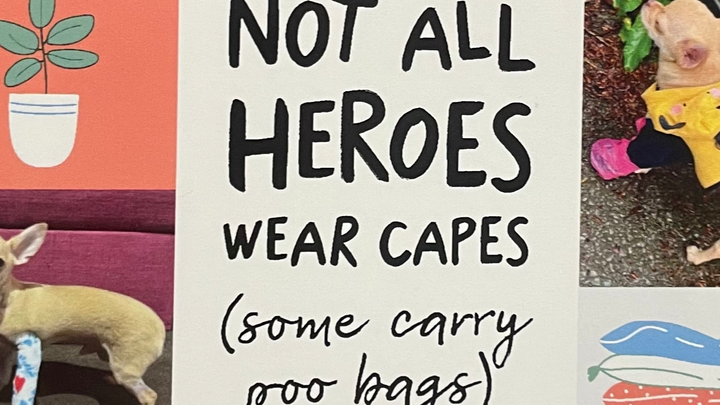 NOT ALL
HEROES
WEAR CAPES
(some carry
poo bags)